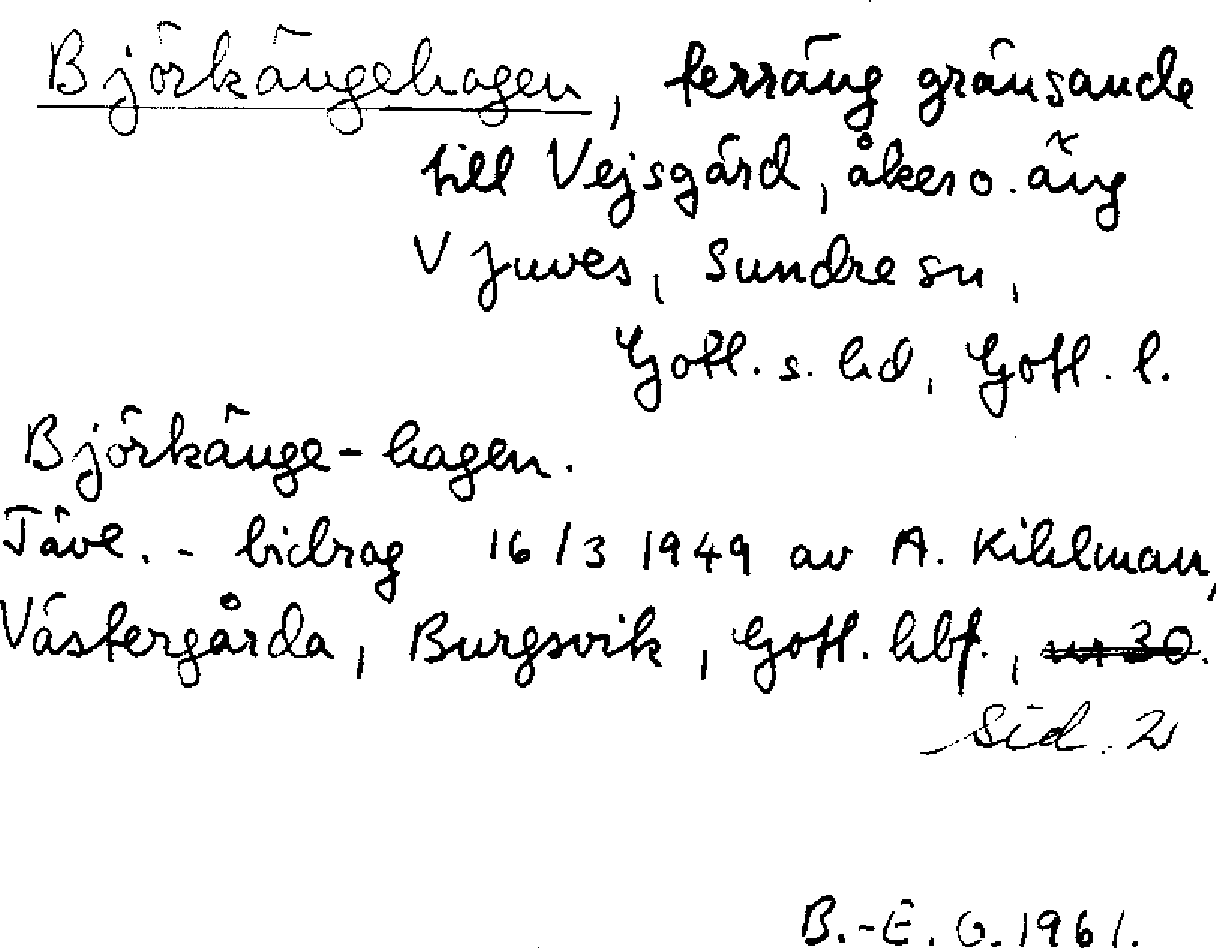 Björkängehagen, terräng gränsande
till Vejsgård, åker o. äng
V Juves, Sundre sn,
Gotl. s. hd, Gotl. l.
Björkänge-hagen.
Tävl.-bidrag 16/3 1949 av A. Kihlman,
Västergårda, Burgsvik, Gotl. hbf., nr 30.
Sid. 2
B.-E. G. 1961.